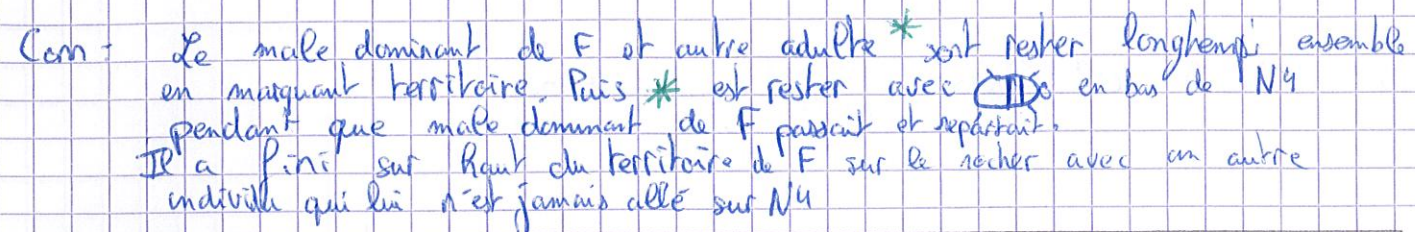 Com - Le male dominant de F et autre adulte * sont rester longtemps ensemble
en marquant territoire. Puis * est rester avec en bas de N4
pendant que male dominant de F passait et repartait.
Il a fini sur haut du territoire de F sur le rocher avec un autre
individu qui lui n'est jamais allé sur N4